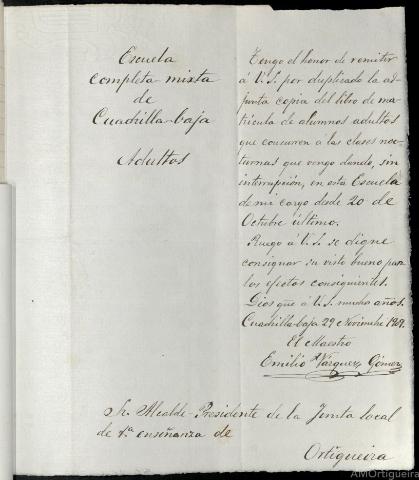 Escuela
completa mixta
de
Cuadrilla-baja
Adultos
Tengo el honor de remitir
á V. S. por duplicado la ad-
junta copia del libro de ma-
trícula de alumnos adultos
que concurren á las clases noc-
turnas que vengo dando, sin
interrupción, en esta Escuela
de mi cargo desde 20 de
Octubre último.
Ruego á V. S. se digne
consignar su visto bueno para
los efectos consiguientes.
Dios gue á V. S. muchos años.
Cuadrilla-baja 29 Noviembre 1909.
El Maestro
Emilio Vázquez Gómez
Sr. Alcalde-Presidente de la Junta local
de 1ª enseñanza de
Ortigueira
AMOrtigueira